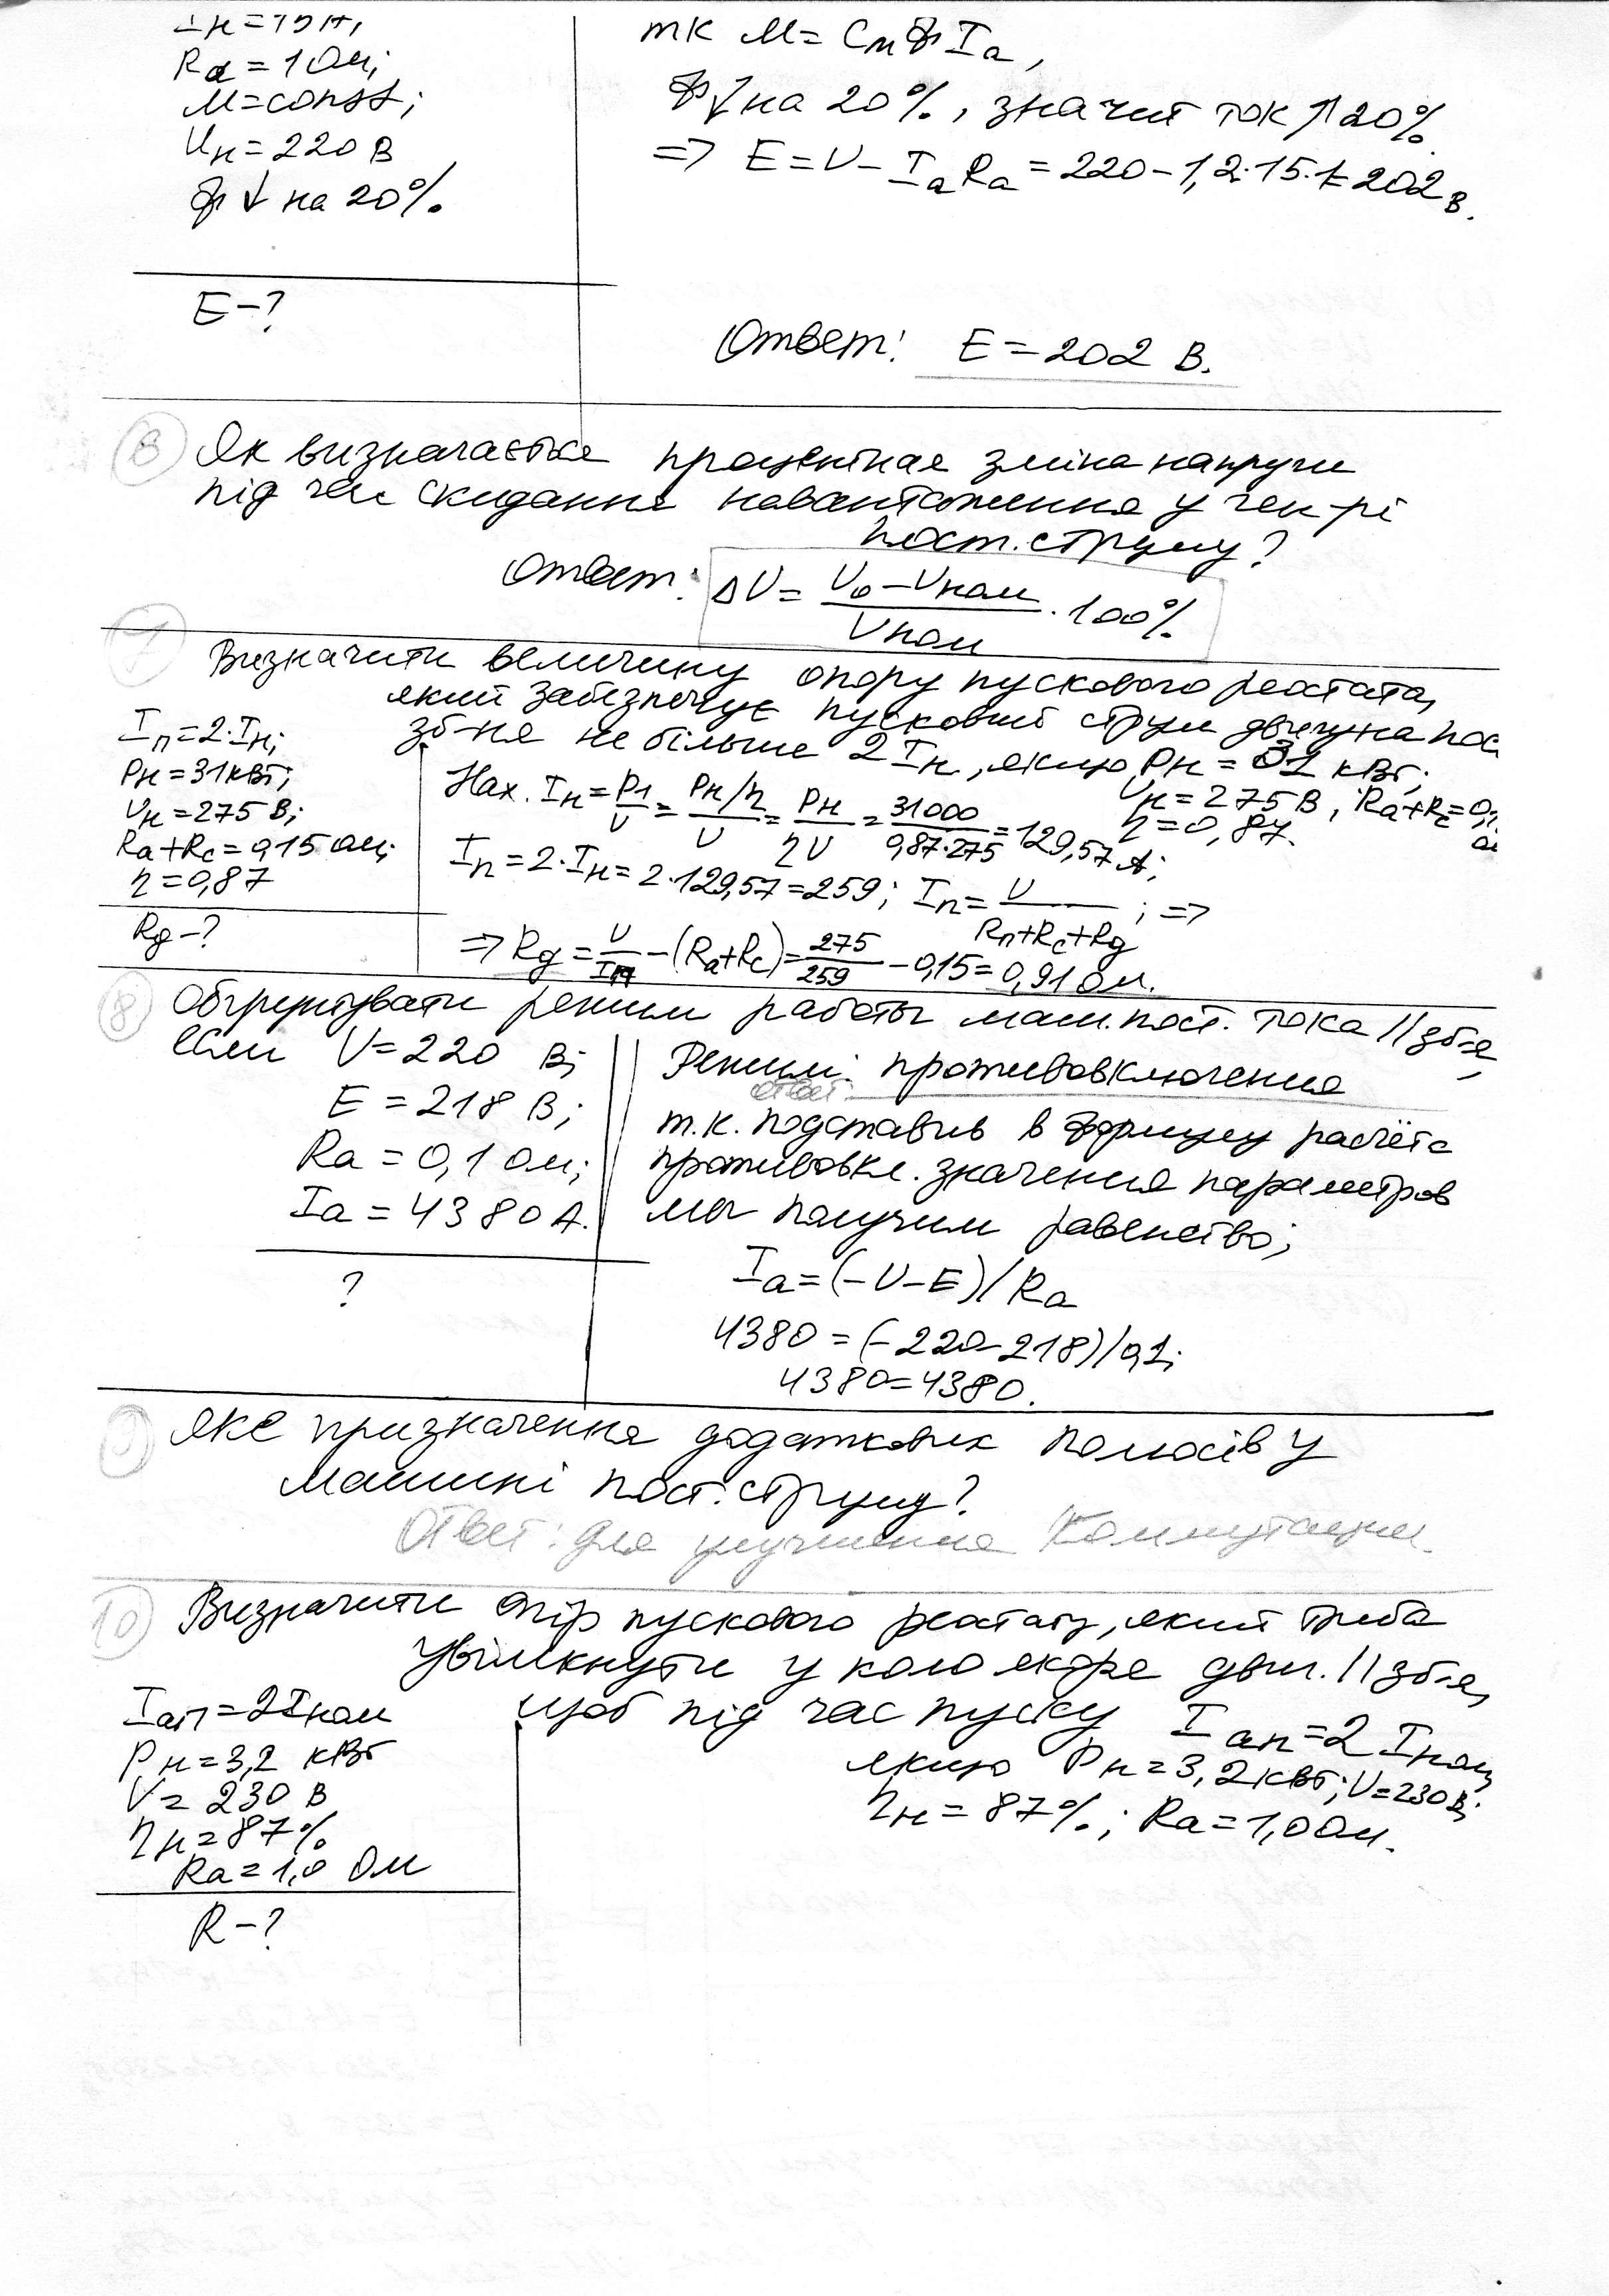 Iн=15А;
Rа=1Ом;
М=const;
Uн=220В
Ф↓ на 20%.
E-?
тк М=СмФIа,
Ф↓ на 20%, значит ток ↑20%.
=> E=U-IаRа=220-1,2·15·1=202В.
Ответ: E=202 В.
6 Як визначається процентная зміна напруги
під час скидання навантаження у ген-рі
пост. струму?
Ответ: ΔU=(U₀-Uном)/Uном · 100%
7 Визначити величину опору пускового реостата,
який забезпечує пусковий струм двигуна пос
зб-ня не більше 2Iн, якщо Pн=31 кВт;
Uн=275В, Rа+Rс=0,
η=0,87.
Iп=2·Iн;
Pн=31кВт;
Uн=275В;
Rа+Rс=0,15 Ом;
η=0,87
Rg-?
Нах. Iн=P1/U=(Pн/η)/U=Pн/ηU=31000/0,87·275=129,57 А;
Iп=2·Iн=2·129,57=259; Iп=U/(Rп+Rс+Rg); =>
=> Rg=U/Iп-(Rа+Rс)=275/259-0,15=0,91 Ом.
8 Обгрунтувати режим работы маш. пост. тока // зб-я,
если U=220 В;
E=218 В;
Rа=0,1 Ом;
Iа=4380А.
?
Режим: противовключения
ответ:
т.к. подставив в формулу расчёта
противовкл. значения параметров
мы получим равенство;
Iа=(-U-E)/Rа
4380=(-220-218)/0,1;
4380=4380.
Яке призначення додаткових полюсів у
машині пост. струму?
Ответ: для улучшения коммутации.
10 Визначити опір пускового реостату, який треба
увімкнути у коло якоре двиг. // зб-я,
щоб під час пуску Iап=2Iном,
якщо Pн=3,2кВт; U=230В;
ηн=87%; Rа=1,0Ом.
Iап=2Iном
Pн=3,2 кВт
U=230 В
ηн=87%
Rа=1,0 Ом
R-?